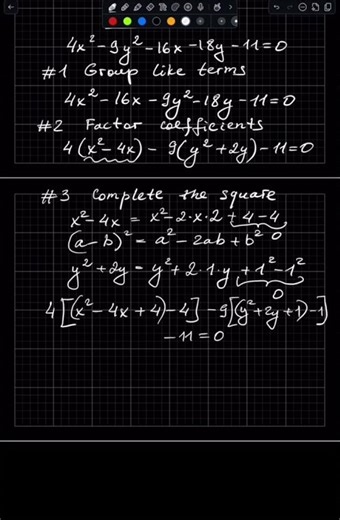 4x² - 9y² - 16x - 18y - 11 = 0
#1 Group like terms
4x² - 16x - 9y² - 18y - 11 = 0
#2 Factor coefficients
4(x² - 4x) - 9(y² + 2y) - 11 = 0
#3 Complete the square
x² - 4x = x² - 2·x·2 + 4 - 4
(a - b)² = a² - 2ab + b² 0
y² + 2y = y² + 2·1·y + 1² - 1²
0
4[(x² - 4x + 4) - 4] - 9[(y² + 2y + 1) - 1]
- 11 = 0